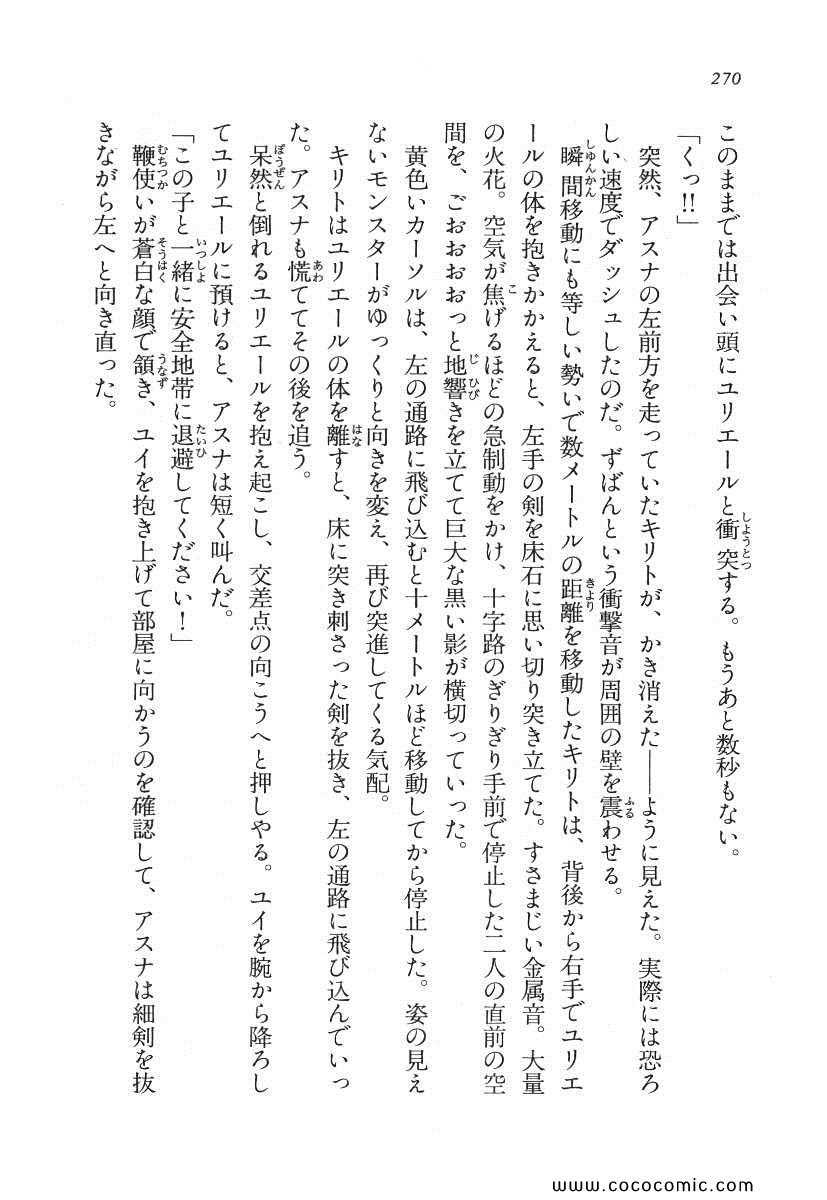 270
このままでは出会い頭にユリエールと衝突する。もうあと数秒もない。
「くっ!!」
突然、アスナの左前方を走っていたキリトが、かき消えた——ように見えた。実際には恐ろ
しい速度でダッシュしたのだ。ずばんという衝撃音が周囲の壁を震わせる。
瞬間移動にも等しい勢いで数メートルの距離を移動したキリトは、背後から右手でユリエ
ールの体を抱きかかえると、左手の剣を床石に思い切り突き立てた。すさまじい金属音。大量
の火花。空気が焦げるほどの急制動をかけ、十字路のぎりぎり手前で停止した二人の直前の空
間を、ごおおおおっと地響きを立てて巨大な黒い影が横切っていった。
黄色いカーソルは、左の通路に飛び込むと十メートルほど移動してから停止した。姿の見え
ないモンスターがゆっくりと向きを変え、再び突進してくる気配。
キリトはユリエールの体を離すと、床に突き刺さった剣を抜き、左の通路に飛び込んでいっ
た。アスナも慌ててその後を追う。
呆然と倒れるユリエールを抱え起こし、交差点の向こうへと押しやる。ユイを腕から降ろし
てユリエールに預けると、アスナは短く叫んだ。
「この子と一緒に安全地帯に退避してください!」
鞭使いが蒼白な顔で頷き、ユイを抱き上げて部屋に向かうのを確認して、アスナは細剣を抜
きながら左へと向き直った。
www.cococomic.com